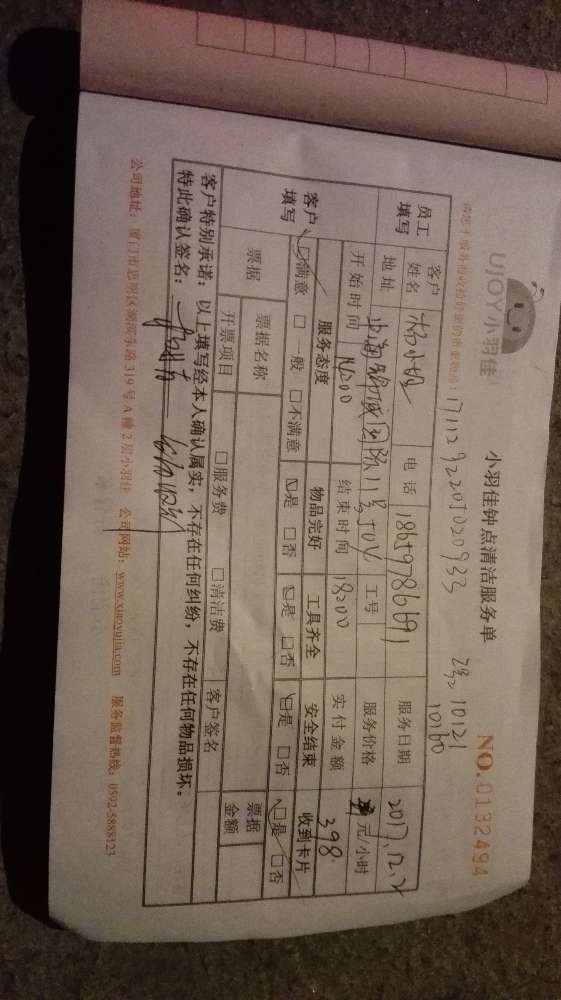 UJOY小羽佳
小羽佳钟点清洁服务单
NO.0132494
1711292205020933
10121
10160
员工填写
客户姓名
电话 18659786691
服务日期 2017.12.2
地址
工号
服务价格 元/小时
开始时间 14:00
结束时间 18:00
实付金额 398
客户填写
服务态度 物品完好 工具齐全 安全结束 收到卡片
☑满意 □一般 □不满意 ☑是 □否 ☑是 □否 ☑是 □否 ☑是 □否
票据 票据名称 票据金额
开票项目 □服务费 □清洁费 客户签名
客户特别承诺：以上填写经本人确认属实，不存在任何纠纷，不存在任何物品损坏。
特此确认签名：
公司地址：厦门市思明区湖滨东路319号A幢2层小羽佳 公司网站：www.xiaoyujia.com 服务监督热线：0592-5888123